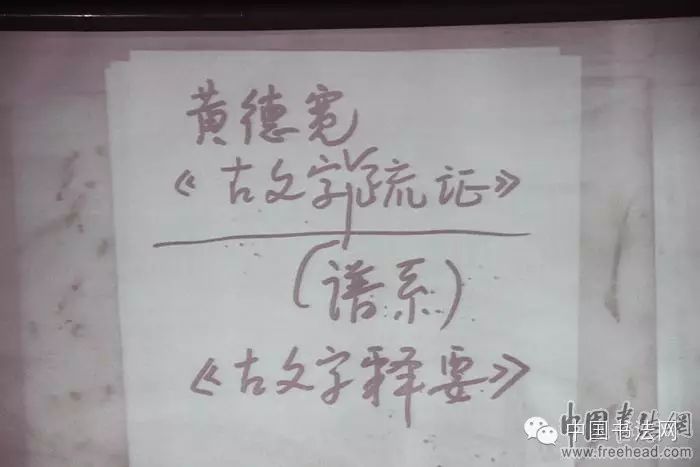 黄德宽
《古文字疏证》
(谱系)
《古文字释要》
中国书法网
中国书法网
www.freehead.com